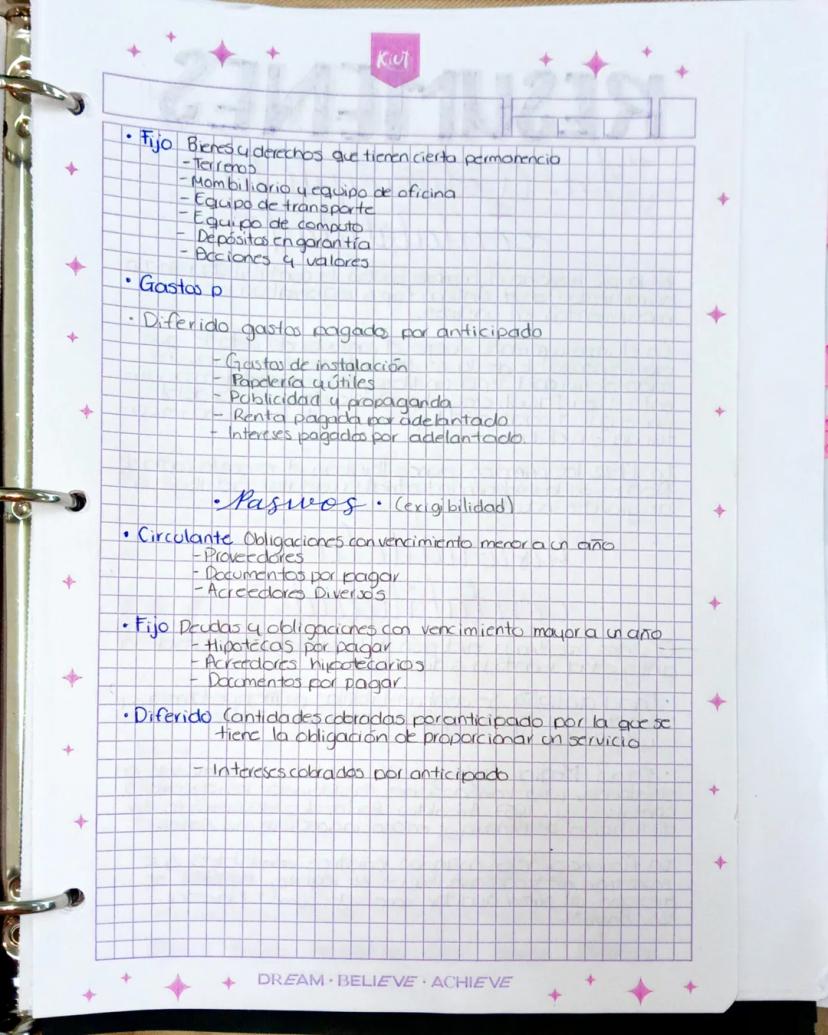 Kiut
• Fijo Bienes y derechos que tienen cierta permanencia
- Terrenos
- Mombiliario y equipo de oficina
- Equipo de transporte
- Equipo de computo
- Depósitos en garantía
- Acciones y valores
• Gastos p
• Diferido gastos pagado por anticipado
- Gastos de instalación
- Papelería y Útiles
- Publicidad y propaganda
- Renta pagada por adelantado
- Intereses pagados por adelantado.
• Pasivos • (exigibilidad)
• Circulante Obligaciones con vencimiento menor a un año
- Proveedores
- Documentos por pagar
- Acreedores Diversos
• Fijo Deudas y obligaciones con vencimiento mayor a un año
- Hipotecas por pagar
- Acreedores hipotecarios
- Documentos por pagar
• Diferido Cantidades cobradas por anticipado por la que se
tiene la obligación de proporcionar un servicio
- Intereses cobrados por anticipado
DREAM · BELIEVE · ACHIEVE